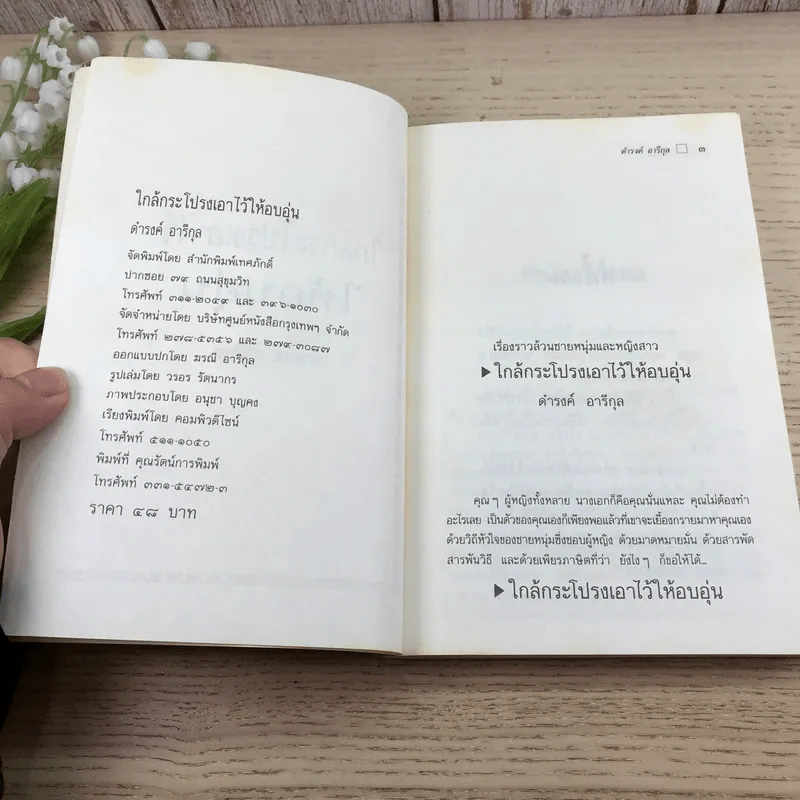 ใกล้กระโปรงเอาไว้ให้อบอุ่น
ดำรงค์ อารีกุล
จัดพิมพ์โดย สำนักพิมพ์เทศภักดิ์
ปากซอย ๗๙ ถนนสุขุมวิท
โทรศัพท์ ๓๑๑-๒๐๔๙ และ ๓๙๖-๑๐๓๐
จัดจำหน่ายโดย บริษัทศูนย์หนังสือกรุงเทพฯ จำกัด
โทรศัพท์ ๒๗๘-๕๓๕๖ และ ๒๗๙-๓๐๘๗
ออกแบบปกโดย ฆรณี อารีกุล
รูปเล่มโดย วรอร รัตนากร
ภาพประกอบโดย อนุชา บุญคง
เรียงพิมพ์โดย คอมพิวดีไซน์
โทรศัพท์ ๕๑๑-๑๐๕๐
พิมพ์ที่ คุณรัตน์การพิมพ์
โทรศัพท์ ๓๓๑-๕๔๗๒-๓
ราคา ๔๘ บาท
ดำรงค์ อารีกุล □ ๓
เรื่องราวล้วนชายหนุ่มและหญิงสาว
▶ใกล้กระโปรงเอาไว้ให้อบอุ่น
ดำรงค์ อารีกุล
คุณๆ ผู้หญิงทั้งหลาย นางเอกก็คือคุณนั่นแหละ คุณไม่ต้องทำ
อะไรเลย เป็นตัวของคุณเองก็เพียงพอแล้วที่เขาจะเยื้องกรายมาหาคุณเอง
ด้วยวิถีหัวใจของชายหนุ่มซึ่งชอบผู้หญิง ด้วยมาดหมายมั่น ด้วยสารพัด
สารพันวิธี และด้วยเพียรภาษิตที่ว่า ยังไงๆ ก็ขอให้ได้...
▶ใกล้กระโปรงเอาไว้ให้อบอุ่น